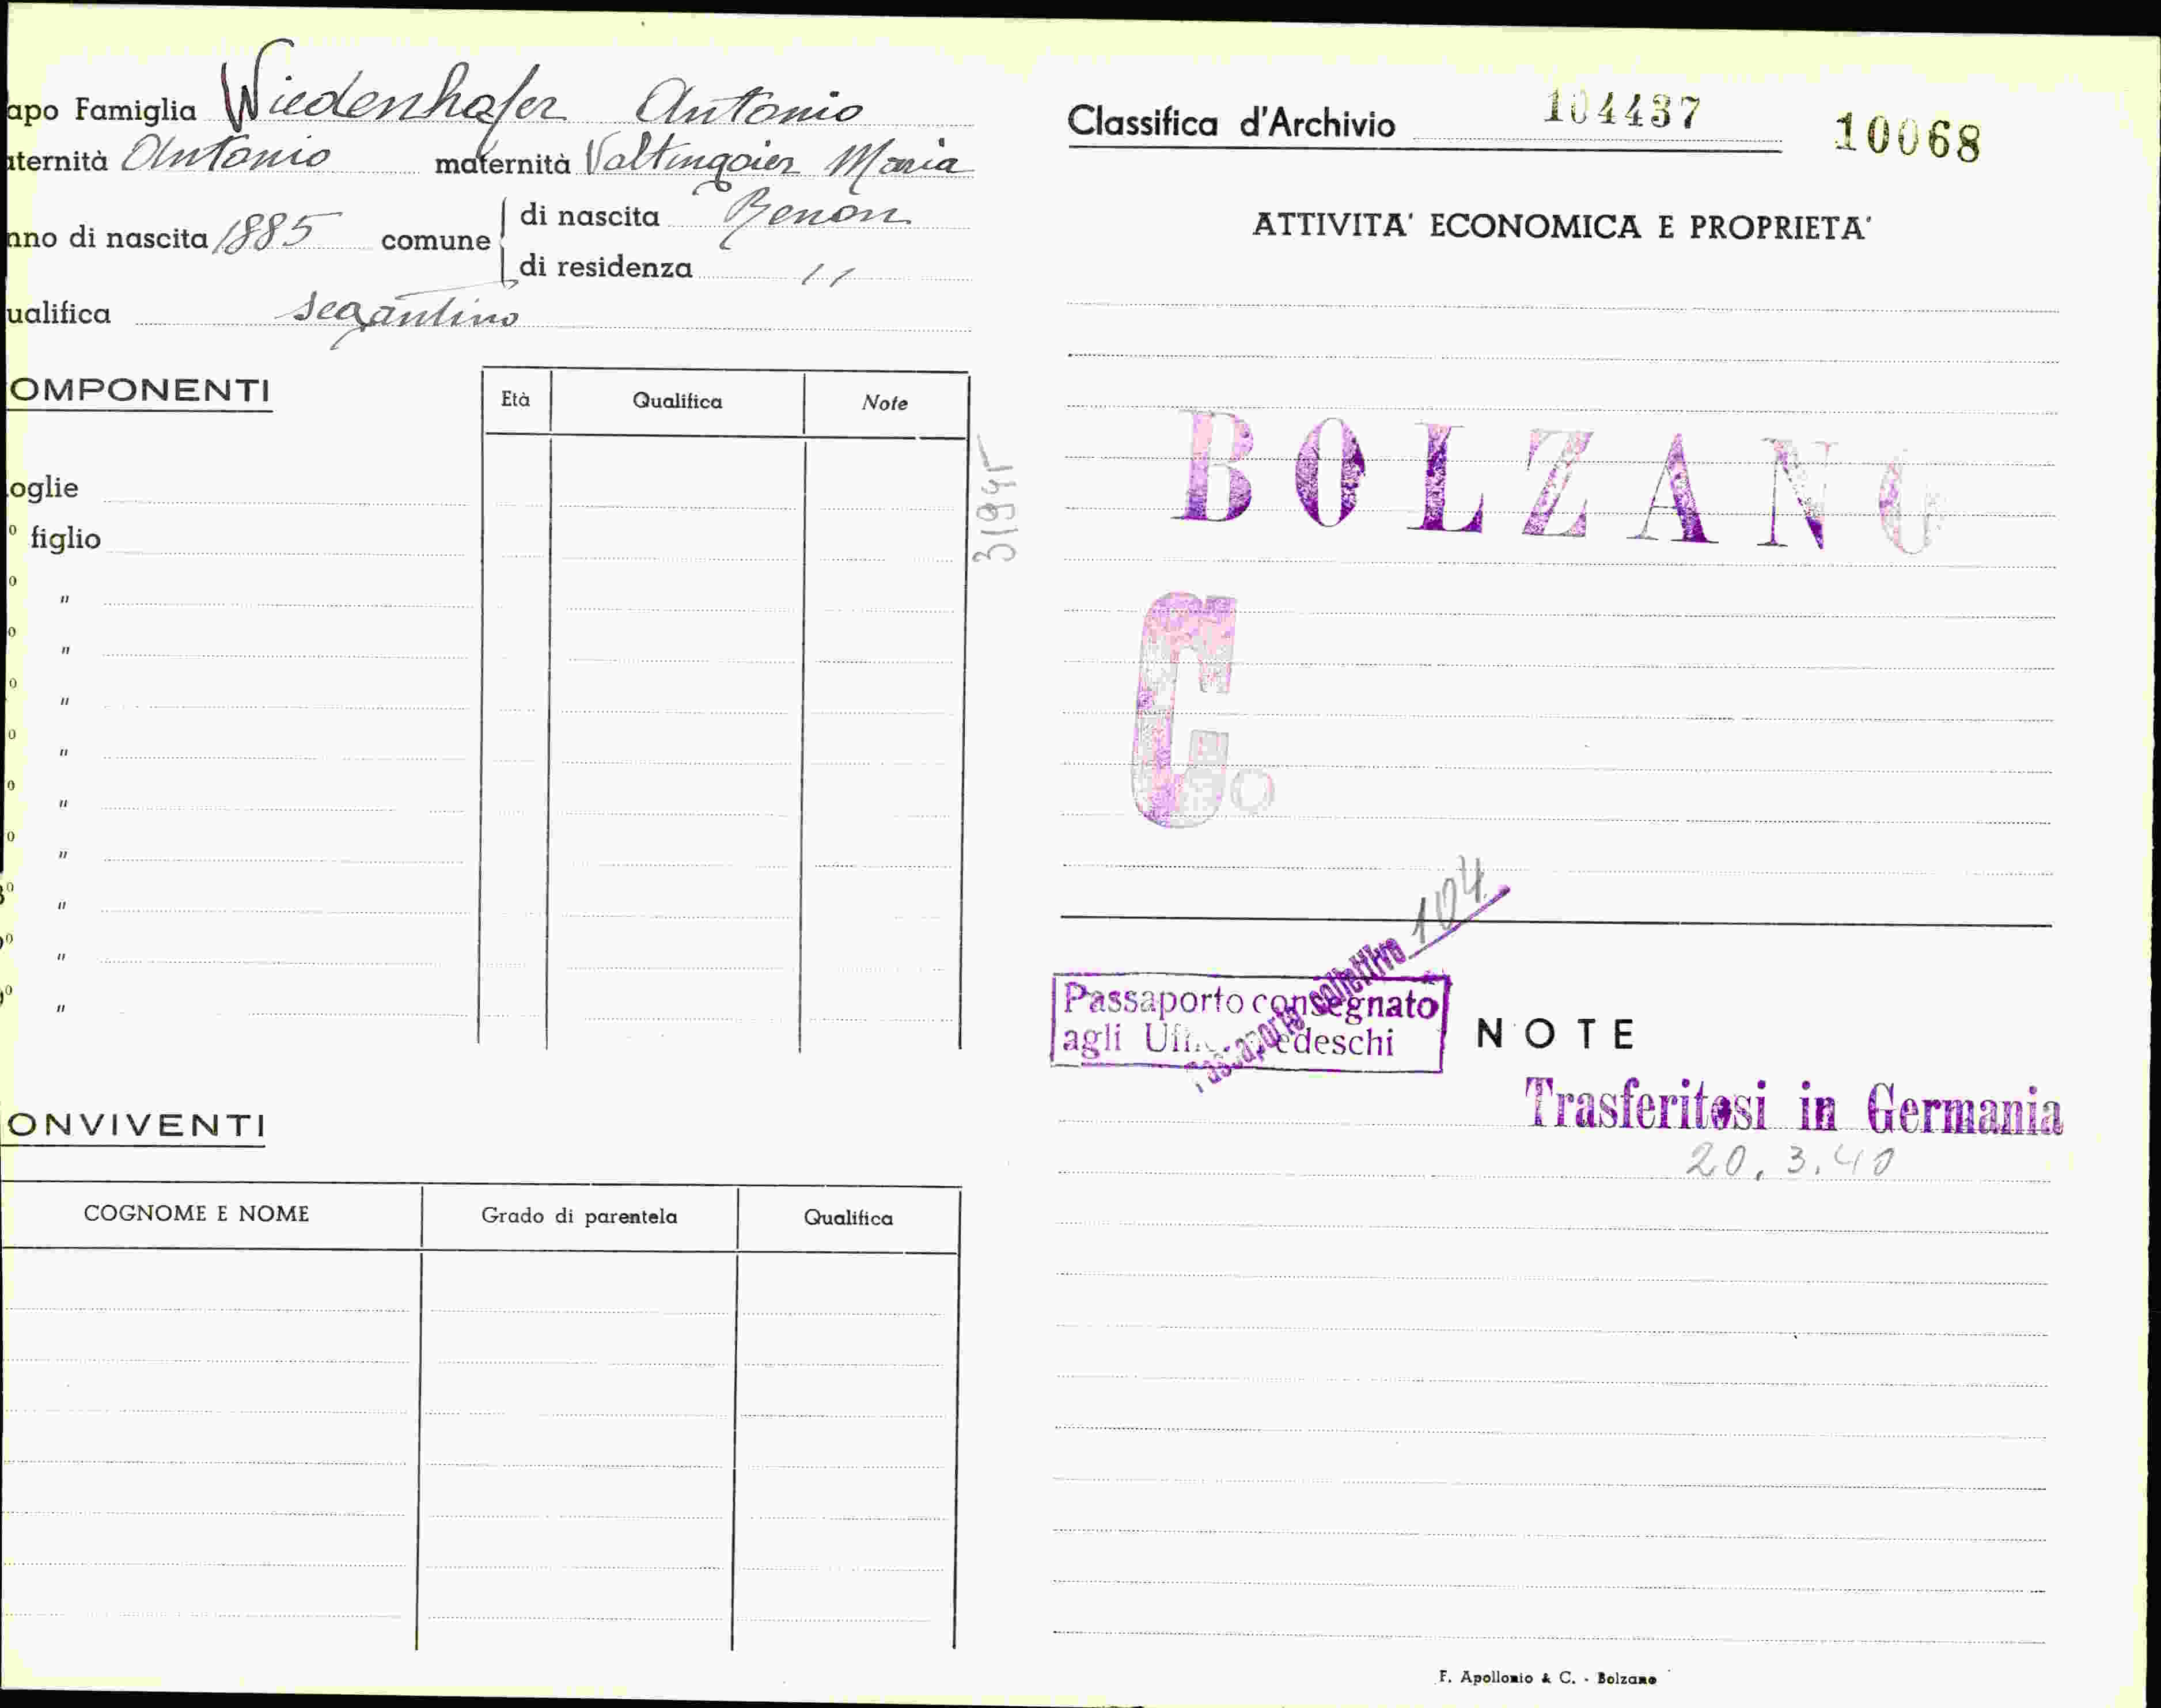 apo Famiglia Wiedenhofer Antonio
ternità Antonio maternità Valtingoier Maria
nno di nascita 1885 comune di nascita Renon
di residenza 11
ualifica segantino
OMPONENTI Età Qualifica Note
oglie
o figlio
o "
o "
o "
o "
o "
o "
8o "
9o "
0o "
31995
ONVIVENTI
COGNOME E NOME Grado di parentela Qualifica
Classifica d'Archivio 104437 10068
ATTIVITA' ECONOMICA E PROPRIETA'
BOLZANO
C.
Passaporto collettivo 104
Passaporto consegnato
agli Uffici Tedeschi
NOTE
Trasferitosi in Germania
20.3.40
F. Apollonio & C. - Bolzano